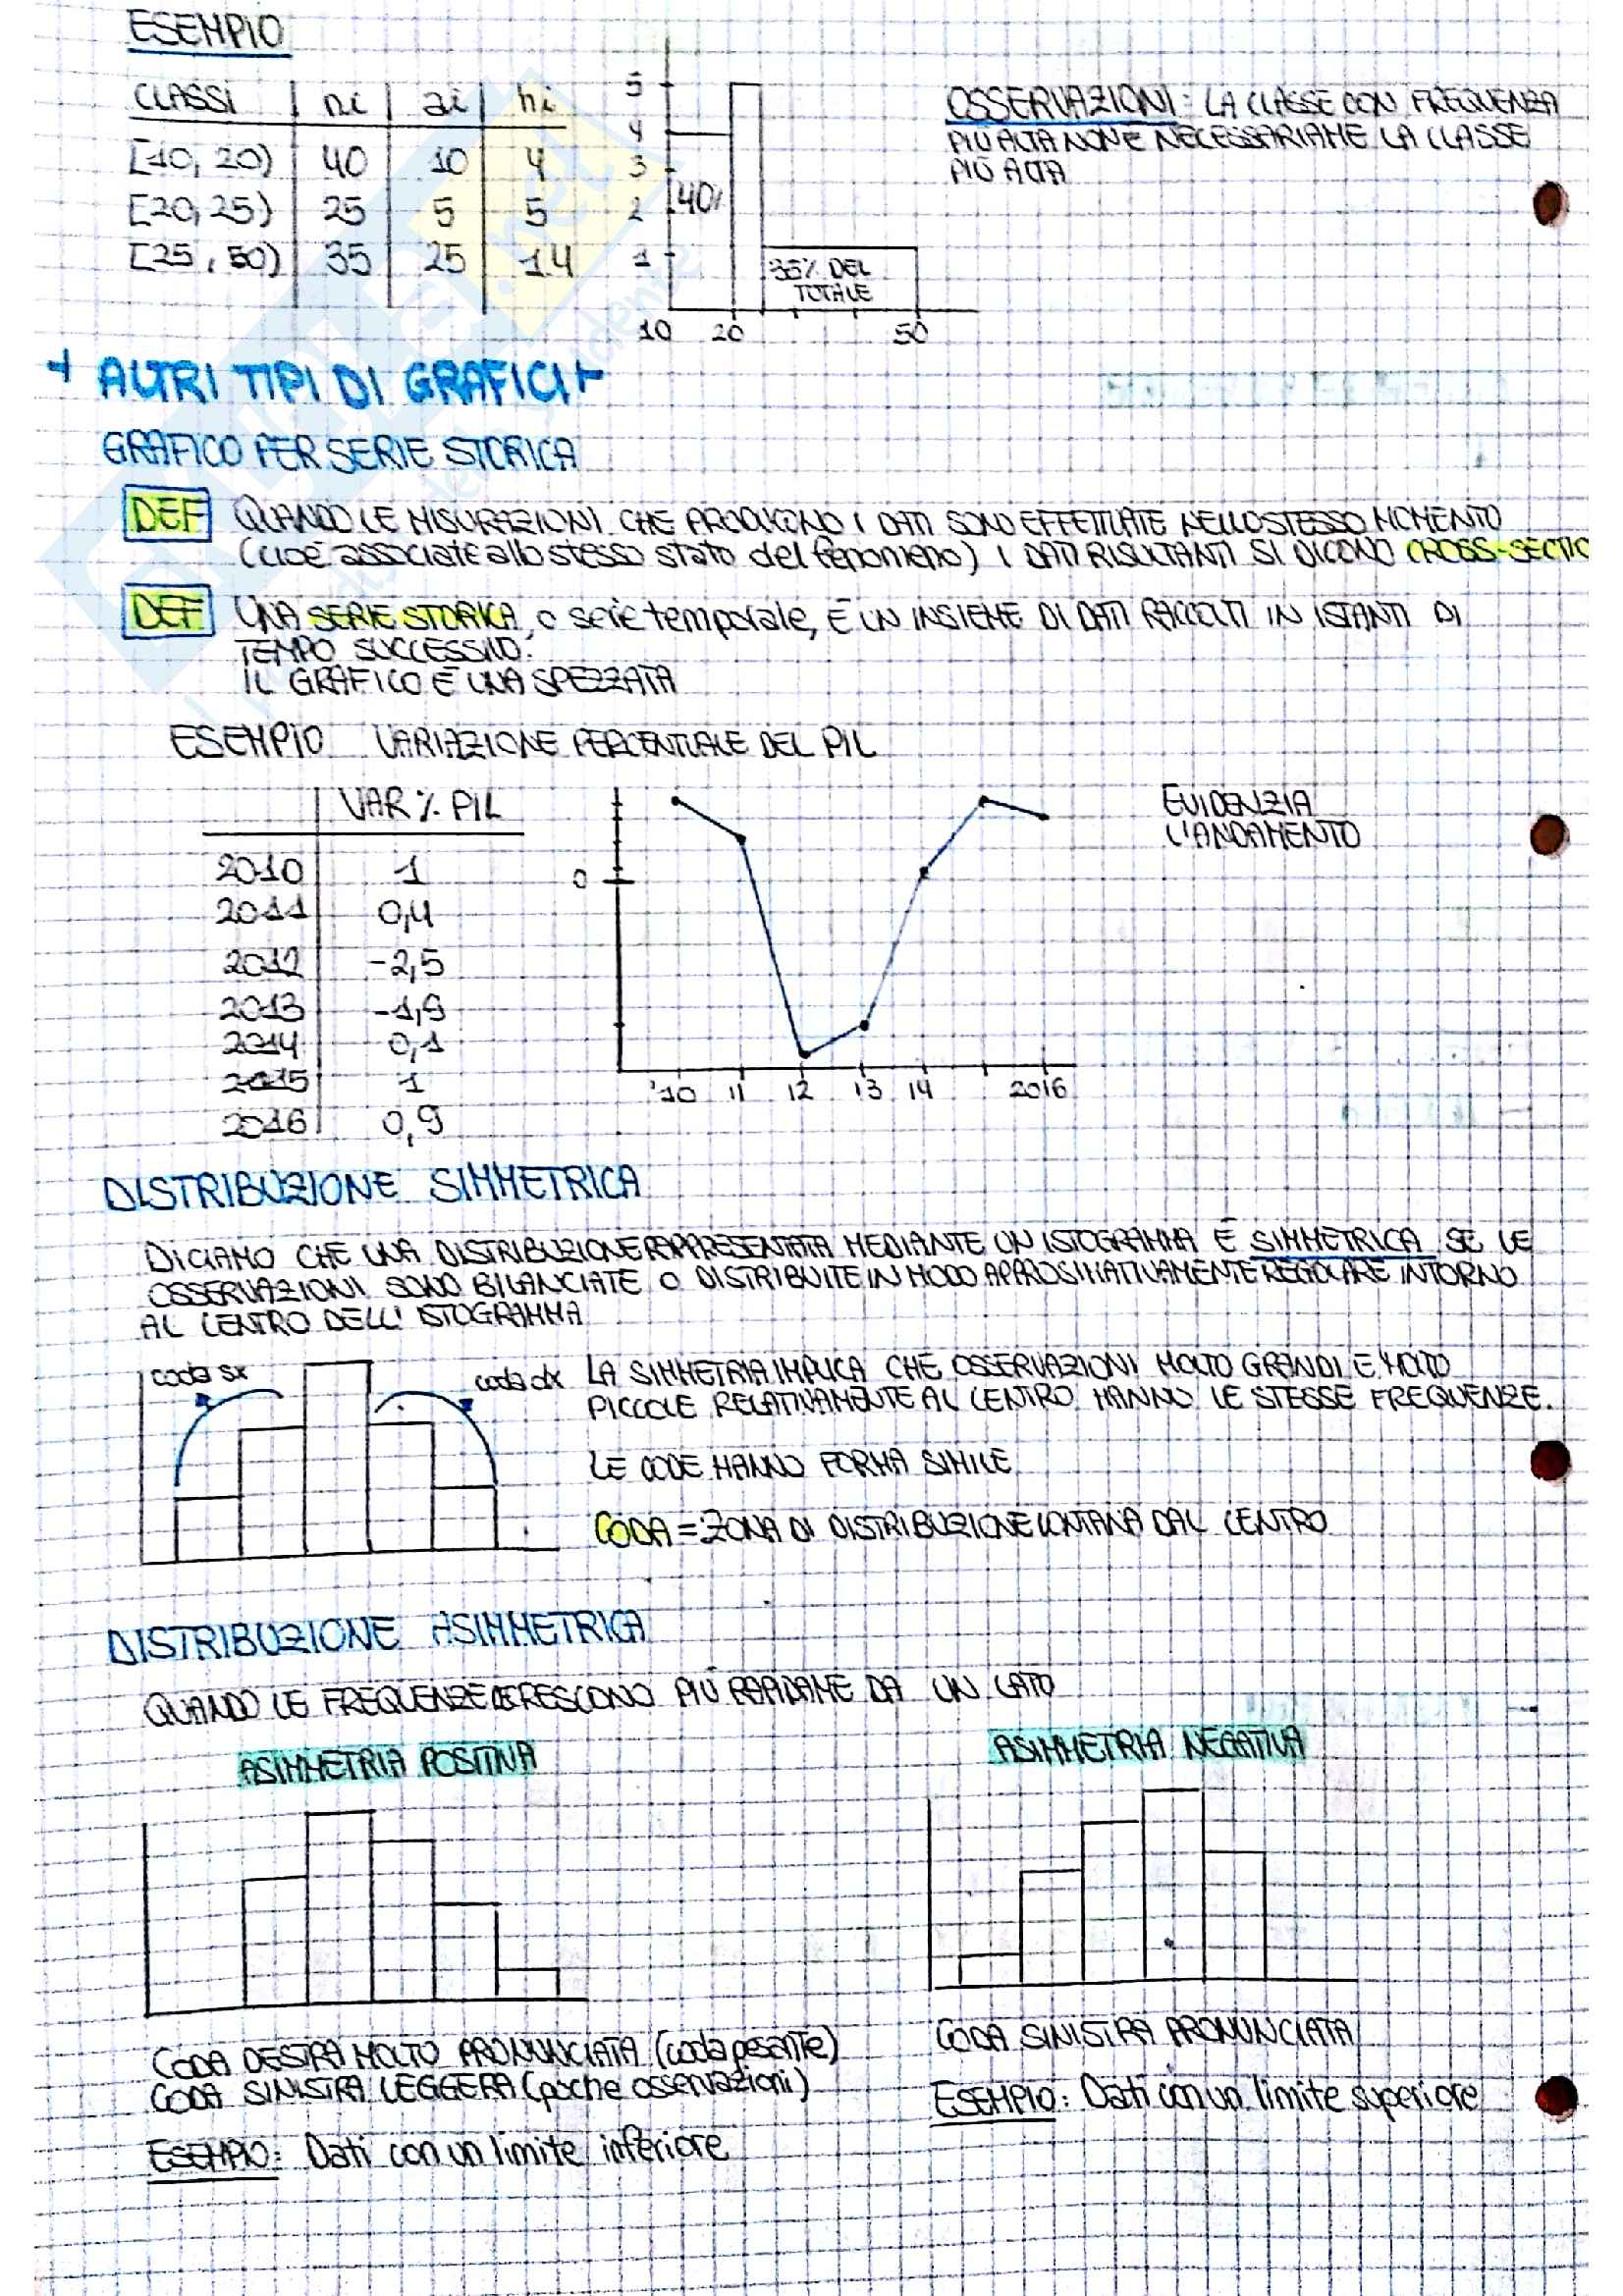 ESEMPIO
CLASSI ni ai hi
[10, 20) 40 10 4
[20, 25) 25 5 5
[25, 50) 35 25 1.4
5
4
3
2
1
40%
35% DEL
TOTALE
10 20 50
OSSERVAZIONI: LA CLASSE CON FREQUENZA
PIÙ ALTA NON È NECESSARIAME LA CLASSE
PIÙ ALTA
ALTRI TIPI DI GRAFICI
GRAFICO PER SERIE STORICA
DEF QUANDO LE MISURAZIONI CHE PRODUCONO I DATI SONO EFFETTUATE NELLO STESSO MOMENTO
(cioè associate allo stesso stato del fenomeno) I DATI RISULTANTI SI DICONO CROSS-SECTIO
DEF UNA SERIE STORICA, o serie temporale, È UN INSIEME DI DATI RACCOLTI IN ISTANTI DI
TEMPO SUCCESSIVO.
IL GRAFICO È UNA SPEZZATA
ESEMPIO VARIAZIONE PERCENTUALE DEL PIL
VAR % PIL
2010 1
2011 0,4
2012 -2,5
2013 -1,9
2014 0,1
2015 1
2016 0,9
0
'10 11 12 13 14 2016
EVIDENZIA
L'ANDAMENTO
DISTRIBUZIONE SIMMETRICA
DICIAMO CHE UNA DISTRIBUZIONE RAPPRESENTATA MEDIANTE UN ISTOGRAMMA È SIMMETRICA SE LE
OSSERVAZIONI SONO BILANCIATE O DISTRIBUITE IN MODO APPROSSIMATIVAMENTE REGOLARE INTORNO
AL CENTRO DELL'ISTOGRAMMA
coda sx
coda dx
LA SIMMETRIA IMPLICA CHE OSSERVAZIONI MOLTO GRANDI E MOLTO
PICCOLE RELATIVAMENTE AL CENTRO HANNO LE STESSE FREQUENZE.
LE CODE HANNO FORMA SIMILE
CODA = ZONA DI DISTRIBUZIONE LONTANA DAL CENTRO
DISTRIBUZIONE ASIMMETRICA
QUANDO LE FREQUENZE DECRESCONO PIÙ RAPIDAME DA UN LATO
ASIMMETRIA POSITIVA
ASIMMETRIA NEGATIVA
CODA DESTRA MOLTO PRONUNCIATA (coda pesante)
CODA SINISTRA LEGGERA (poche osservazioni)
ESEMPIO: Dati con un limite inferiore
CODA SINISTRA PRONUNCIATA
ESEMPIO: Dati con un limite superiore